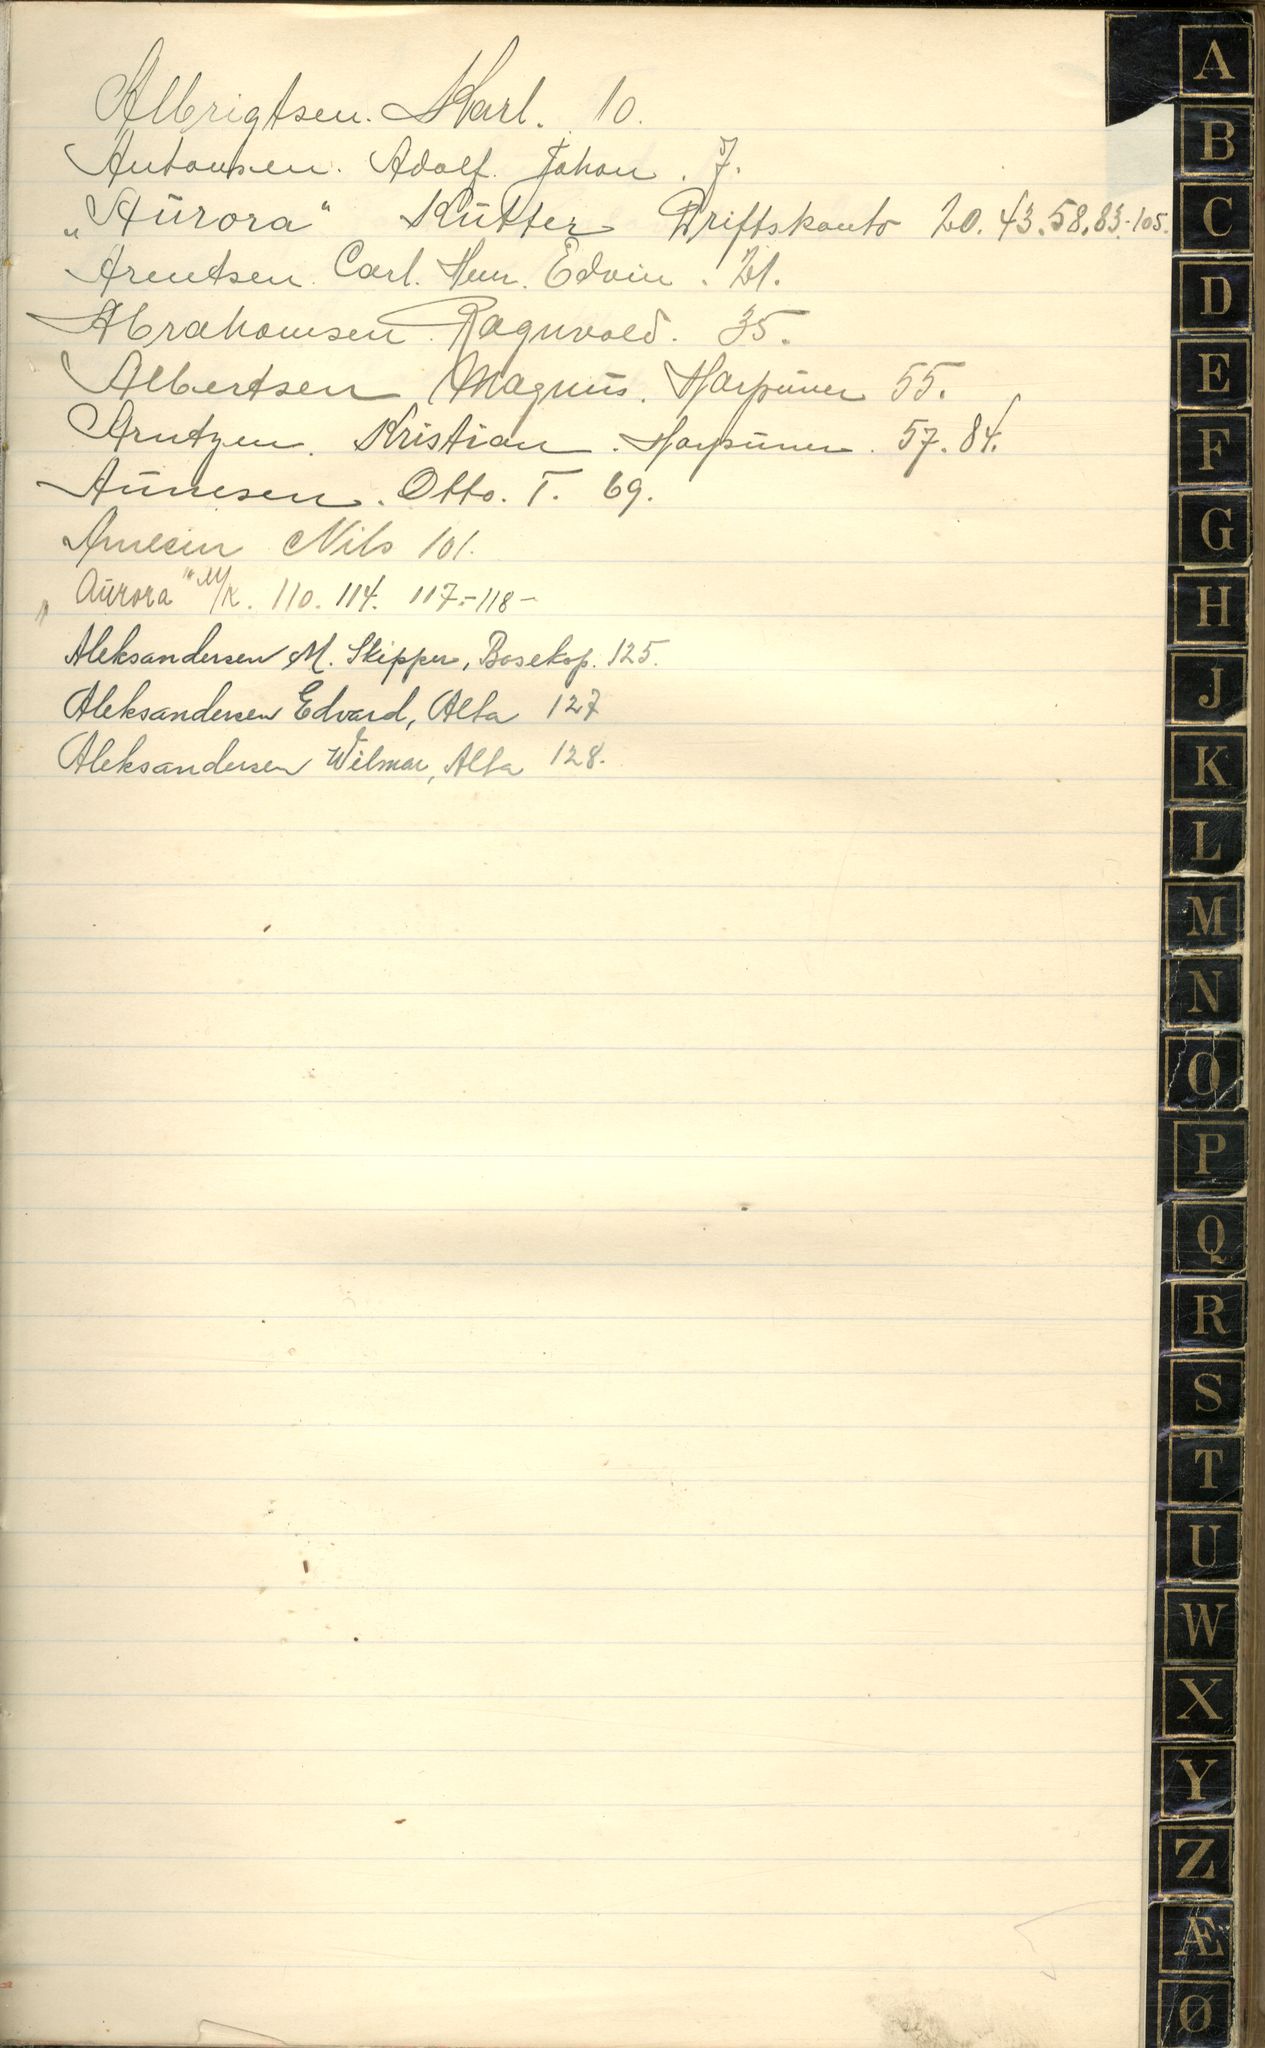 Albrigtsen. Karl. 10.
Antonsen. Adolf. Johan. 7.
„Aurora“ Kutter Driftskonto 20. 43. 58. 83.-105.
Arentsen. Carl. Henr. Edvin. 21.
Abrahamsen. Ragnvald. 35.
Albertsen Magnus. Harpuner 55.
Arntzen. Kristian. Harpuner. 57. 84.
Aunesen. Otto. T. 69.
Arnesen Nils 101.
„Aurora“ M/K. 110. 114. 117.-118-
Aleksandersen M. Skipper, Bosekop. 125.
Aleksandersen Edvard, Alta 127
Aleksandersen Wilmar, Alta 128.
A
B
C
D
E
F
G
H
J
K
L
M
N
O
P
Q
R
S
T
U
W
X
Y
Z
Æ
Ø